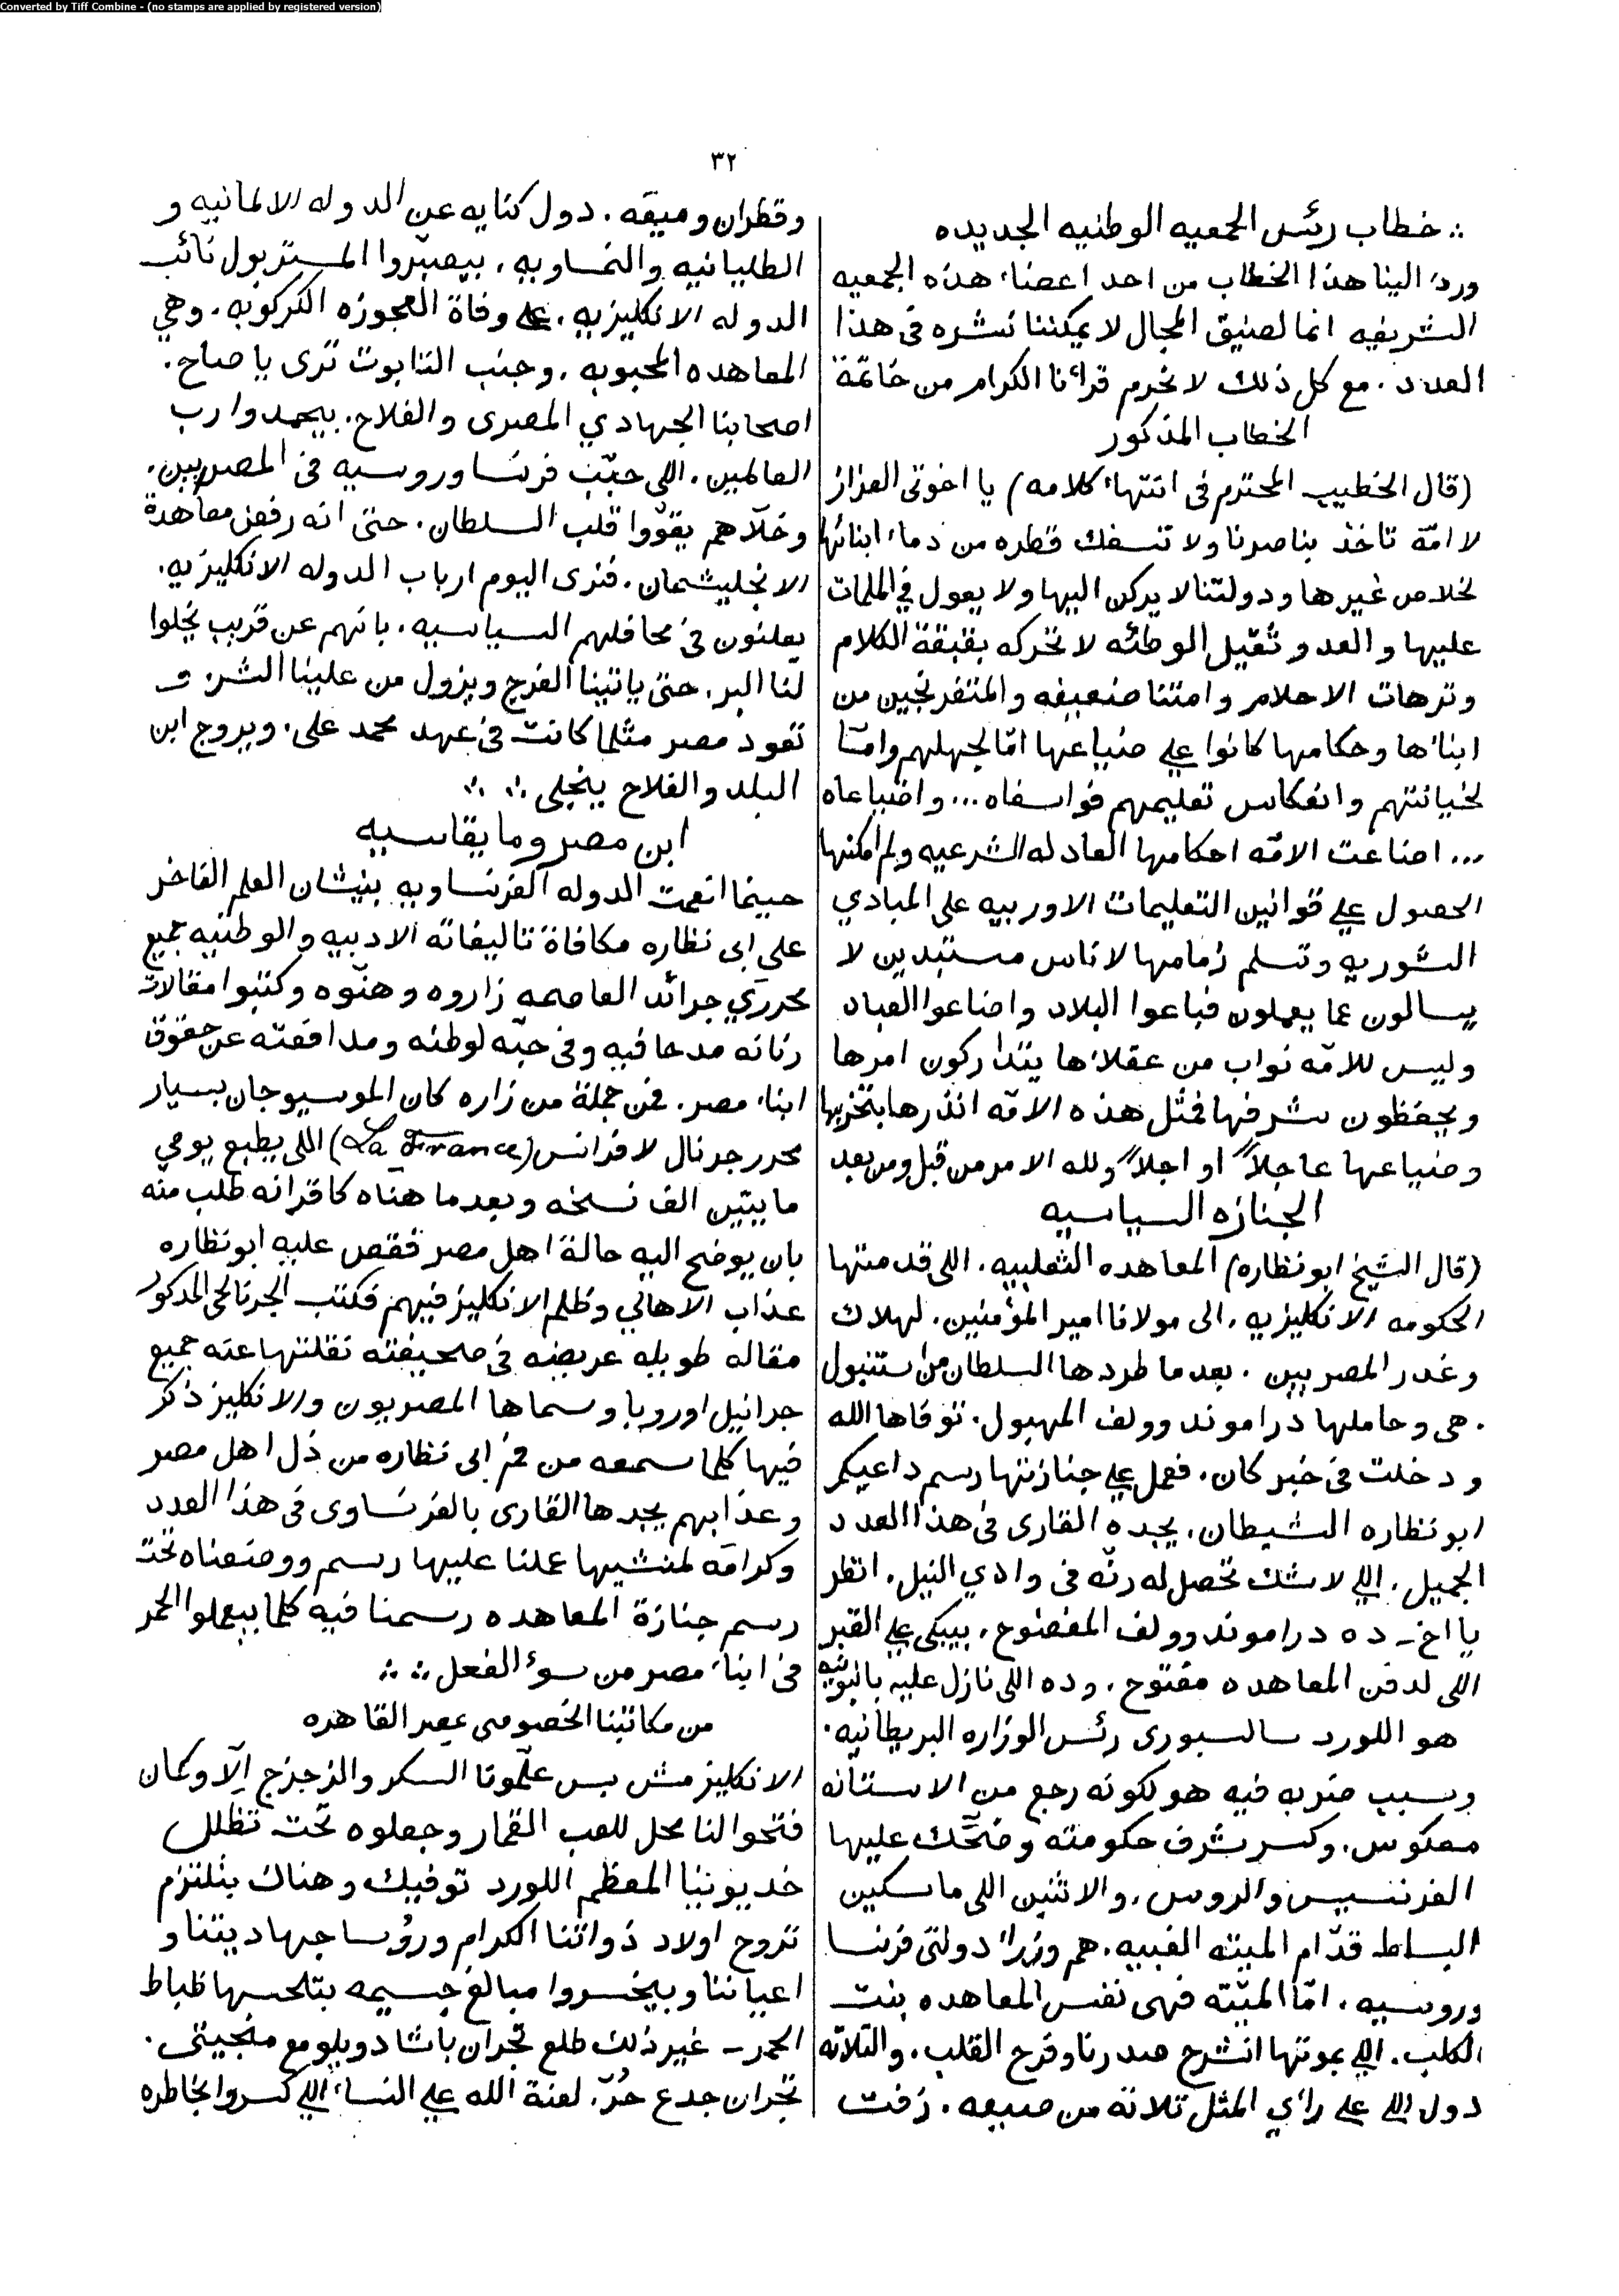 Converted by Tiff Combine - (no stamps are applied by registered version)
٣٢
∴ خطاب رئس الجمعيه الوطنيه الجديده
ورد الينا هذا الخطاب من احد اعضاء هذه الجمعيه
الشريفه انما لضيق المجال لا يمكننا نشره فى هذا
العدد . مع كل ذلك لا نحرم قرائنا الكرام من خاتمة
الخطاب المذكور
(قال الخطيب المحترم فى انتهاء كلامه) يا اخوتى العزاز
لا امّه تاخذ بناصرنا ولا تسفك قطره من دماء ابنائها
لخلاص غيرها ودولتنا لا يركن اليها ولا يعول في الملمات
عليها والعدو ثقيل الوطئه لا تحركه بقبقة الكلام
وترهات الاحلام وامتنا ضعيفه والمتفرنجين من
ابناءها وحكامها كانوا علي ضياعها امّا لجهلهم وامّا
لخيانتهم وانعكاس تعليمهم فواسفاه ... واضياعاه
... اضاعت الامّه احكامها العادله الشرعيه ولم امكنها
الحصول علي قوانين التعليمات الاوربيه على المبادي
الشوريه وتسلم زمامها لاناس مستبدين لا
يسالون عما يعملون فباعوا البلاد واضاعوا العباد
وليس للامّه نواب من عقلاءها يتداركون امرها
ويحفظون شرفها فمثل هذه الامّه انذرها بتخريبها
وضياعها عاجلاً او اجلاً ولله الامر من قبل ومن بعد
الجنازه السياسيه
(قال الشيخ ابو نظاره) المعاهده الثعلبيه . اللى قدمتها
الحكومه الانكليزيه . الى مولانا امير المؤمنين . لهلاك
وغدر المصريين . بعد ما طردها السلطان من استنبول
. هى وحاملها دراموند وولف المهبول . توفاها الله
ودخلت فى خبر كان . فعمل علي جنازتها رسم داعيكم
ابو نظاره الشيطان . يجده القارى فى هذا العدد
الجميل . اللي لا شك تحصل له رنّه فى وادي النيل . انظر
يا اخ - ده دراموند وولف المفضوح . بيبكى علي القبر
اللى لدفن المعاهده مفتوح . وده اللى نازل عليه بالبونيه
هو اللورد سالسبورى رئس الوزاره البريطانيه .
وسبب ضربه فيه هو لكونه رجع من الاستانه
معكوس . وكسر شرف حكومته وضحّك عليها
الفرنسيس والروس . والاثنين اللى ماسكين
البساط قدّام الميته الغبيه . هم وزراء دولتى فرنسا
وروسيه . امّا الميّته فهى نفس المعاهده بنت
الكلب . اللي بموتها انشرح صدرنا وفرح القلب . والتلاته
دول اللي علي رأي المثل تلاته من صبيعه . زفت
وقطران وميقه . دول كنايه عن الدوله الالمانيه و
الطليانيه والنمساويه . بيصبّروا المستر بول نائب
الدوله الانكليزيه . علي وفاة العجوزه الكركوبه . وهي
المعاهده المحبوبه . وجنب التابوت ترى يا صاح .
اصحابنا الجهادي المصرى والفلاح . بيحمدوا رب
العالمين . اللى حبّب فرنسا وروسيه فى المصريين .
وخلاّهم يقوّوا قلب السلطان . حتى انه رفض معاهدة
الانجليشمان . فنرى اليوم ارباب الدوله الانكليزيه .
يعلنون فى محافلهم السياسيه . بانهم عن قريب يخلوا
لنا البر . حتى ياتينا الفرج ويزول من علينا الشر . و
تعود مصر مثلما كانت فى عهد محمد على . ويروج ابن
البلد والفلاح ينجلى ∴ ∴
ابن مصر وما يقاسيه
حينما انعمت الدوله الفرنساويه بنيشان العلم الفاخر
على ابى نظاره مكافاة تاليفاته الادبيه والوطنيه جميع
محررّي جرائد العاصمه زاروه وهنّوه وكتبوا مقالات
رنانه مدحا فيه وفى حبّه لوطنه ومدافعته عن حقوق
ابناء مصر . فمن جملة من زاره كان الموسيو جان بسيار
محرر جرنال لا فرانس (La France) اللى يطبع يومي
مايتين الف نسخه وبعد ما هناه كاقرانه طلب منه
بان يوضح اليه حالة اهل مصر فقص عليه ابو نظاره
عذاب الاهالي وظلم الانكليز فيهم فكتب الجرنالجى المذكور
مقاله طويله عريضه فى صحيفته نقلتها عنه جميع
جرانيل اوروبا وسماها المصريون والانكليز ذكر
فيها كلما سمعه من فم ابى نظاره من ذل اهل مصر
وعذابهم يجدها القارى بالفرنساوى فى هذا العدد
وكرامّه لمنشيها عملنا عليها رسم ووضعناه تحت
رسم جنازة المعاهده رسمنا فيه كلما بيعملوا الحمر
فى ابناء مصر من سوء الفعل ∴ ∴
من مكاتبنا الخصوصى بمصر القاهره
الانكليز مش بس علّمونا السكر والزجزج الاّ وكمان
فتحوا لنا محل للعب القمار وجعلوه تحت تظلل
خديوننا المعظم اللورد توفيك وهناك بنلتزم
نروح اولاد ذواتنا الكرام ورؤسا جهاديتنا و
اعياننا وبيخسروا مبالغ جسيمه بتلحسها ظباط
الحمر - غير ذلك طلع تجران باشا دوبلو مع منجيتى .
تجران جدع حُرّ . لعنة الله علي النساء اللي كسروا بخاطره